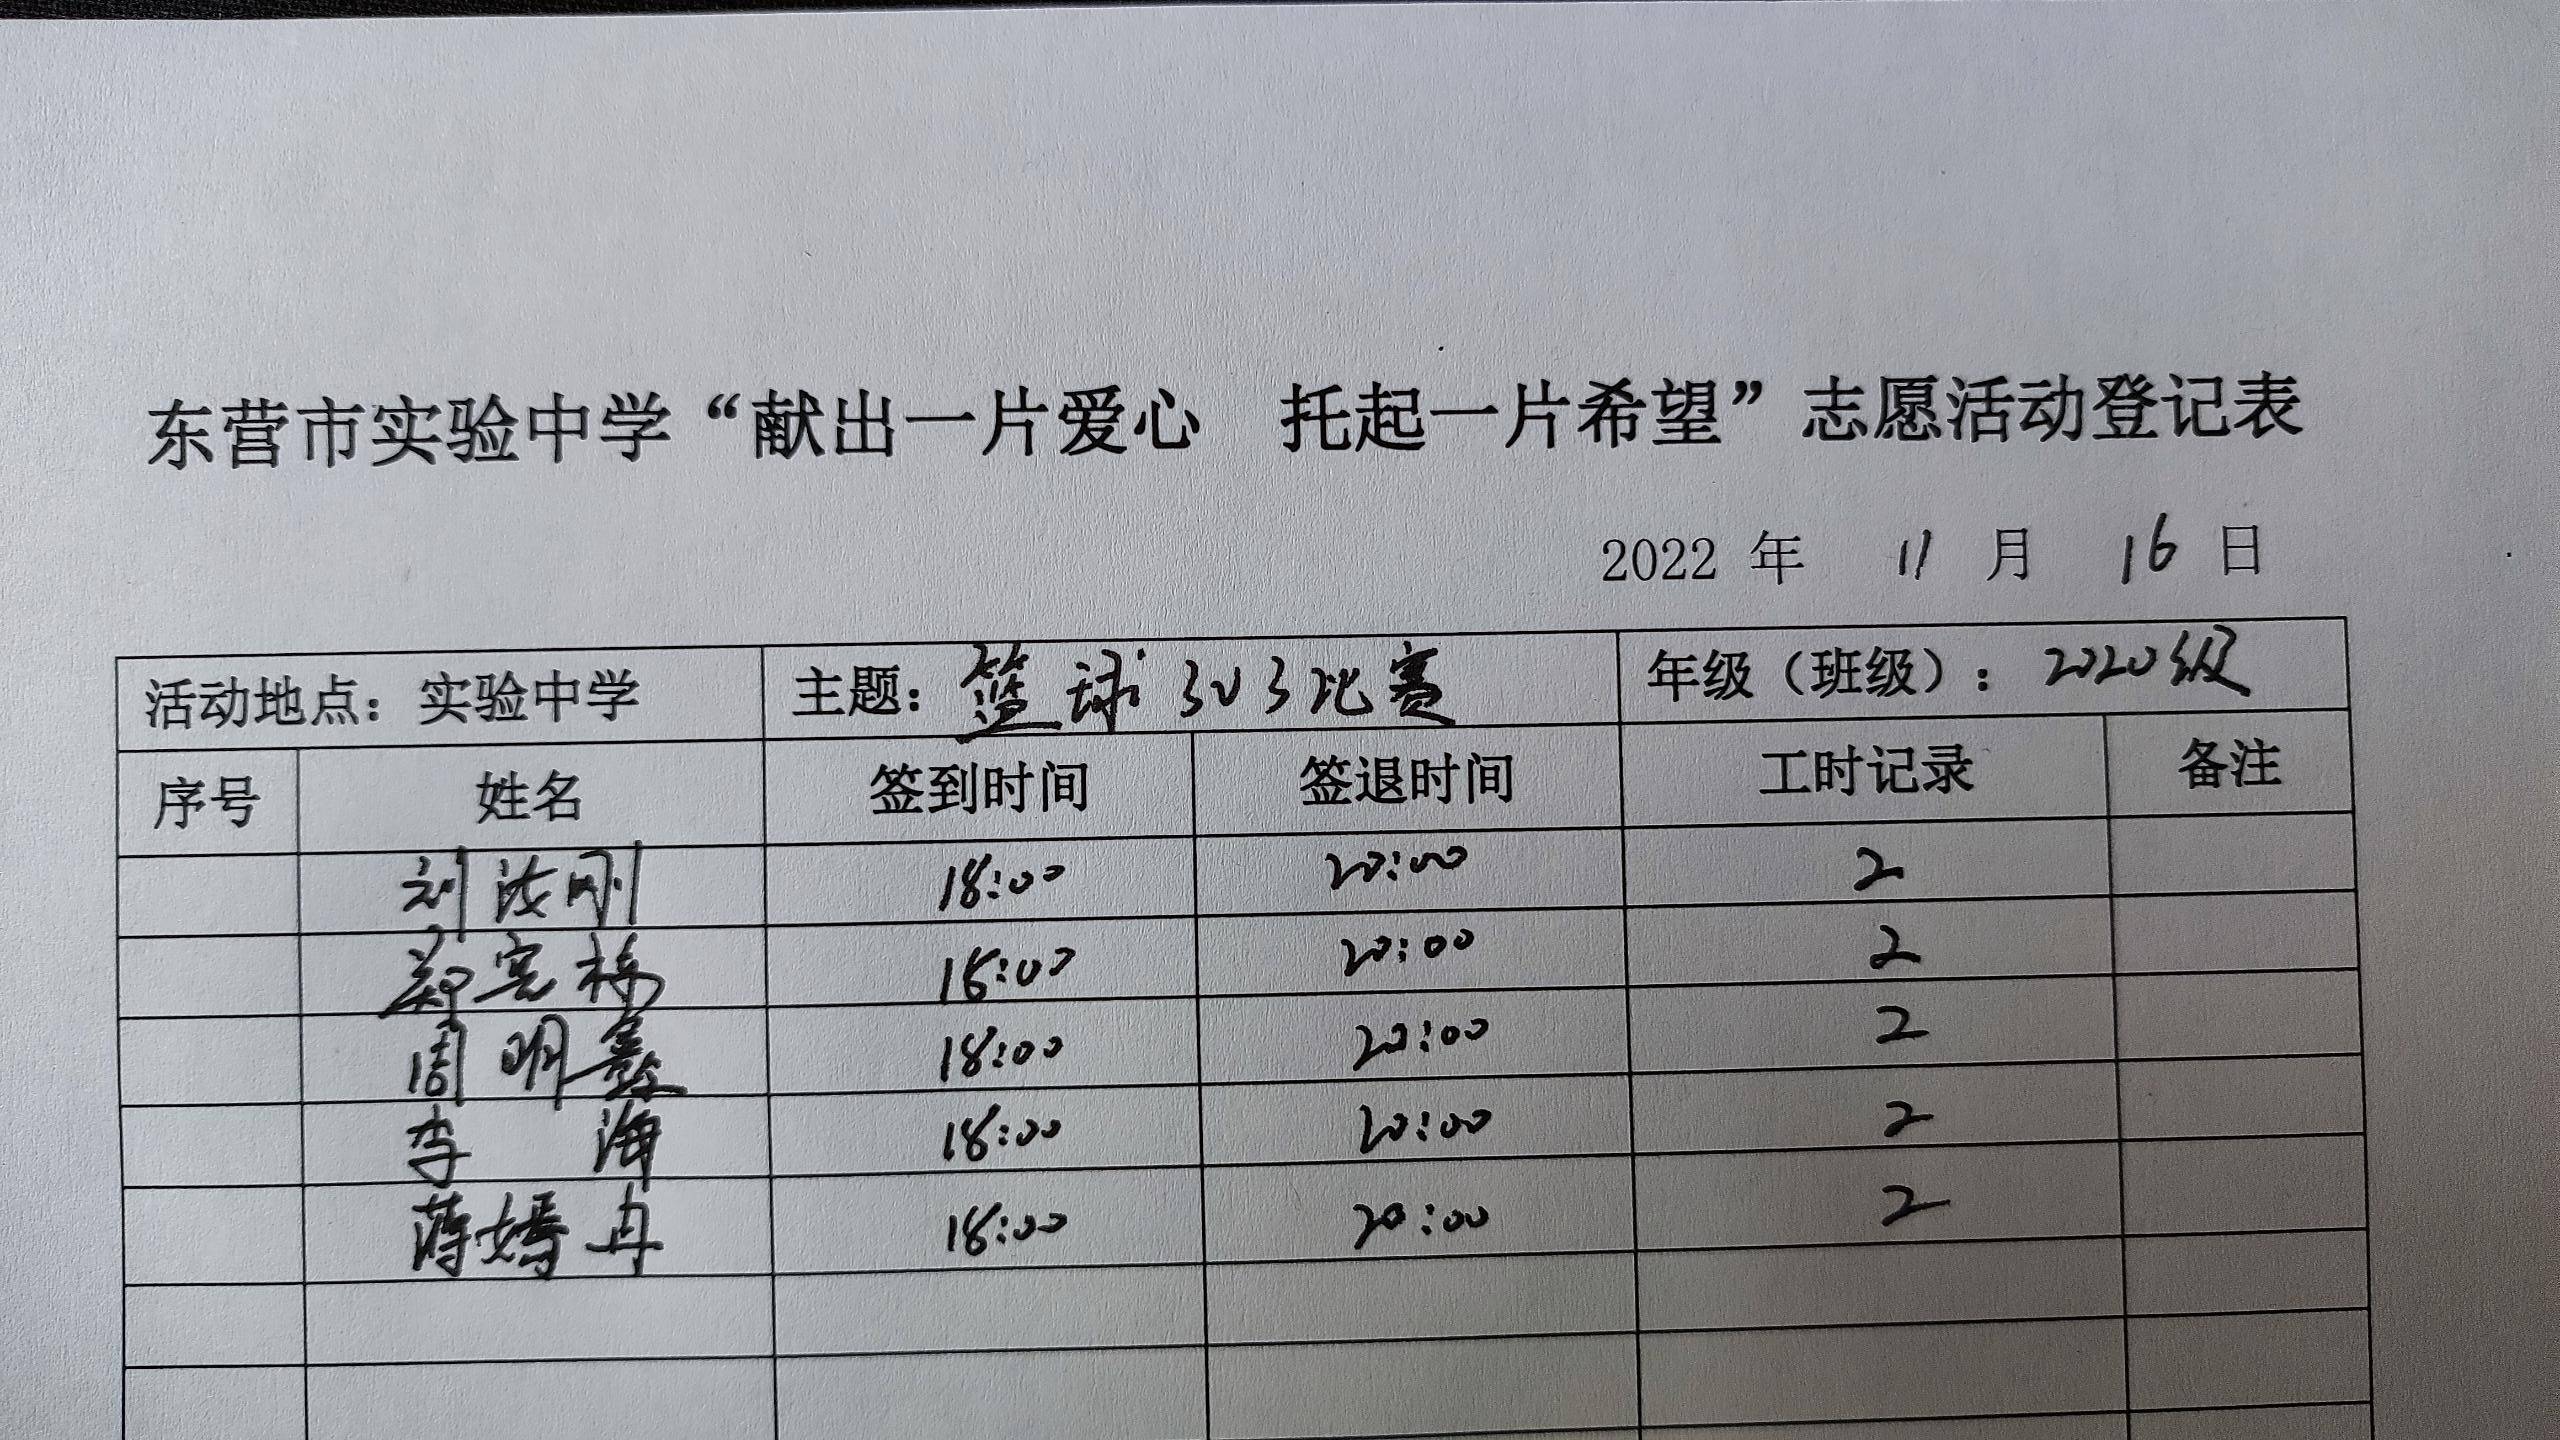 东营市实验中学“献出一片爱心 托起一片希望”志愿活动登记表
2022 年 11 月 16 日
活动地点：实验中学 主题：篮球3V3比赛 年级（班级）：2020级
序号 姓名 签到时间 签退时间 工时记录 备注
刘汝刚 18:00 20:00 2
郑宪栋 18:00 20:00 2
周明鑫 18:00 20:00 2
李海 18:00 20:00 2
蒋嫣冉 18:00 20:00 2